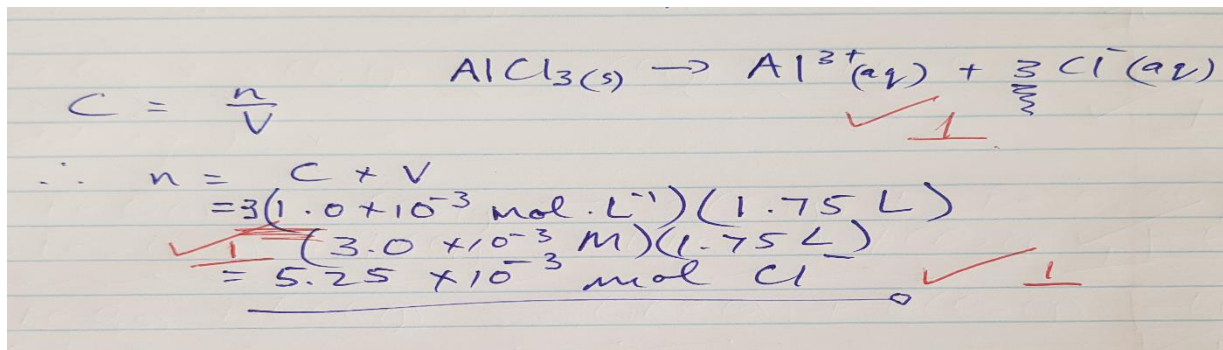 AlCl₃(s) → Al³⁺(aq) + 3 Cl⁻(aq)
C = n/V
✓ 1
∴ n = C × V
= 3(1.0 × 10⁻³ mol . L⁻¹)(1.75 L)
✓ 1 (3.0 × 10⁻³ M)(1.75 L)
= 5.25 × 10⁻³ mol Cl⁻ ✓ 1